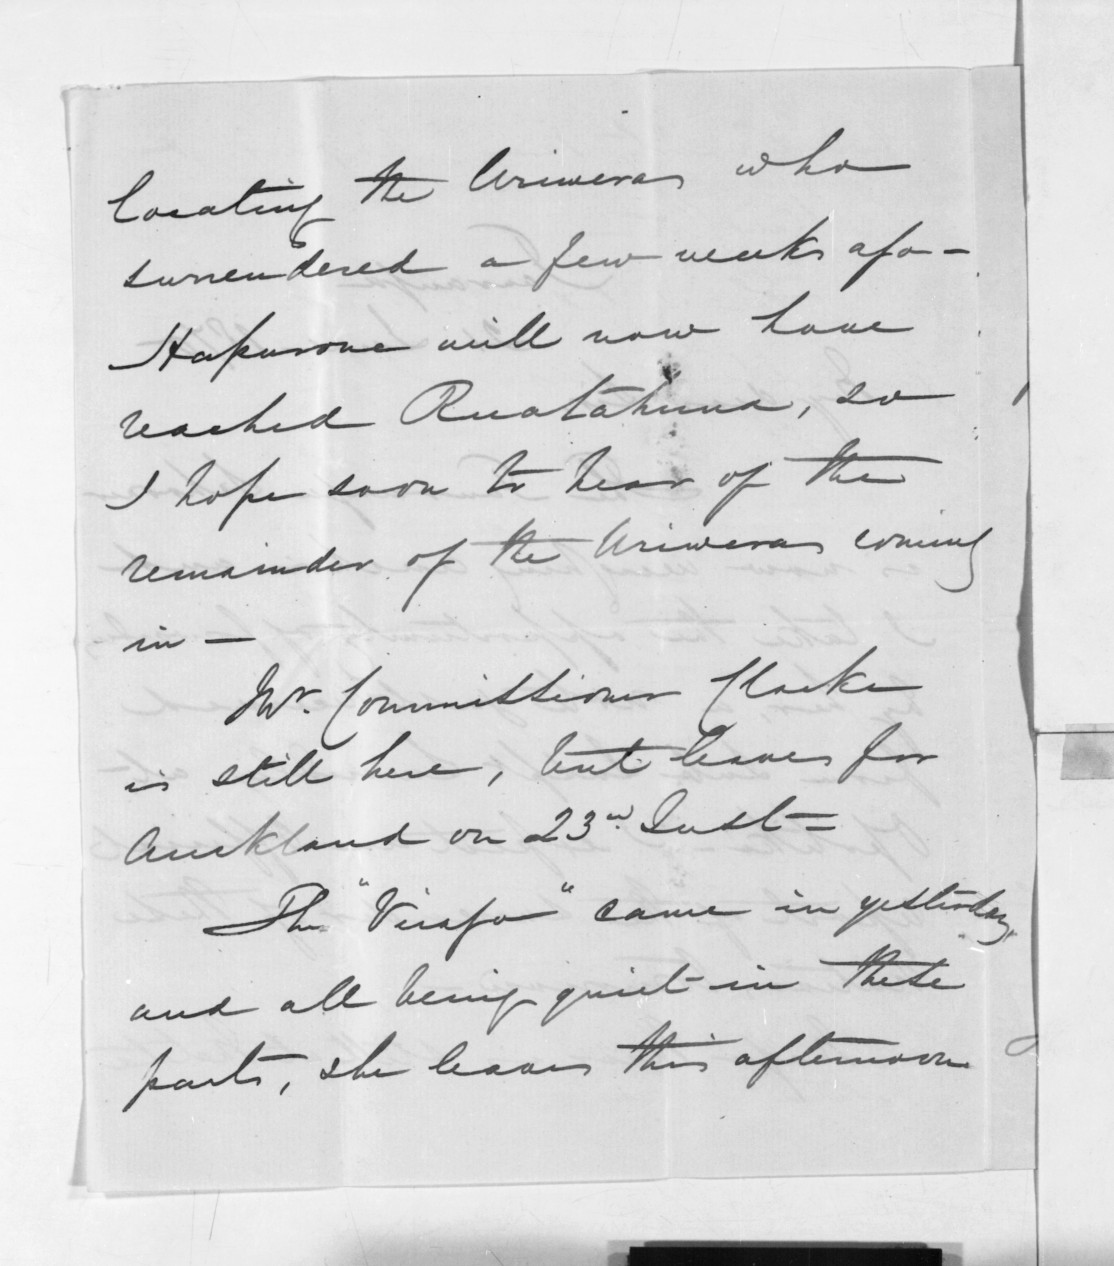 locating the Uriweras who
surrendered a few weeks ago –
Hapurona will now have
reached Ruatahuna, so
I hope soon to hear of the
remainder of the Uriweras coming
in –
Mr. Commissioner Clarke
is still here, but leaves for
Auckland on 23rd Inst =
The "Virago" came in yesterday,
and all being quiet in these
parts, she leaves this afternoon